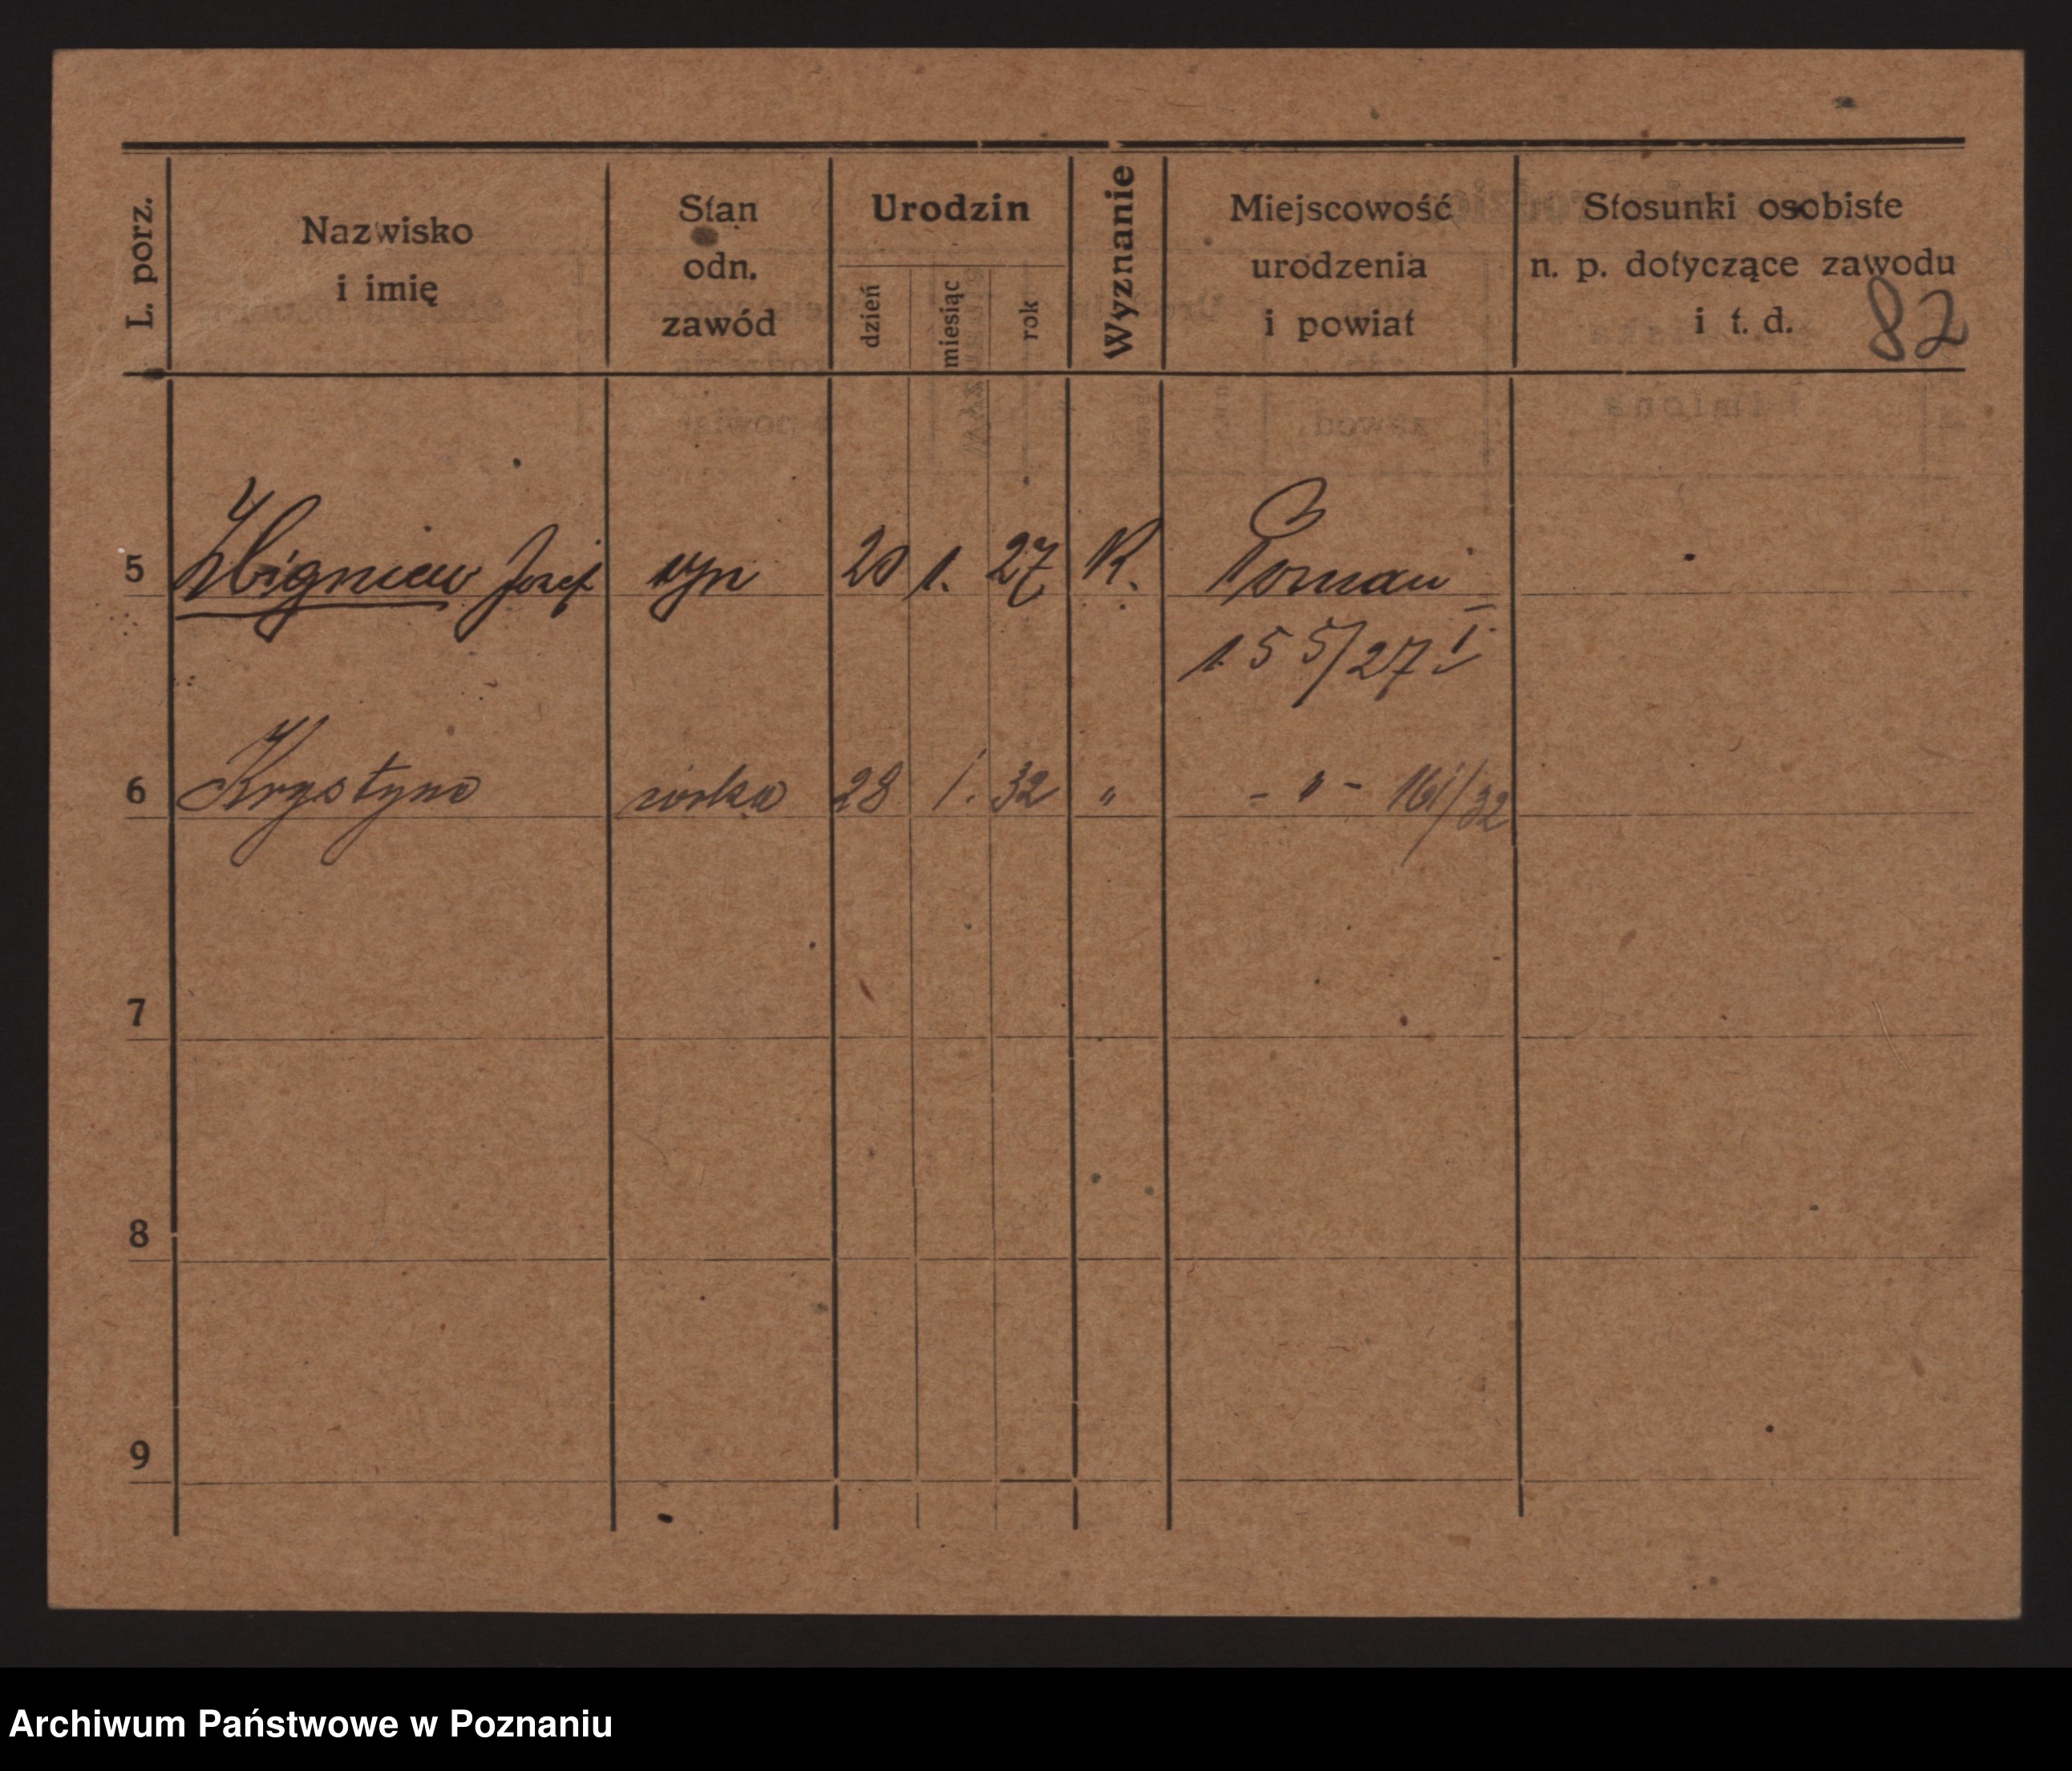 L. porz.
Nazwisko
i imię
Stan
odn.
zawód
Urodzin
dzień
miesiąc
rok
Wyznanie
Miejscowość
urodzenia
i powiat
Stosunki osobiste
n. p. dotyczące zawodu
i t. d.
82
5 Zbigniew Józef syn 20 1. 27 K. Poznań
155/27 I
6 Krystyna córka 28 1. 32 " - " - 161/32
7
8
9
Archiwum Państwowe w Poznaniu